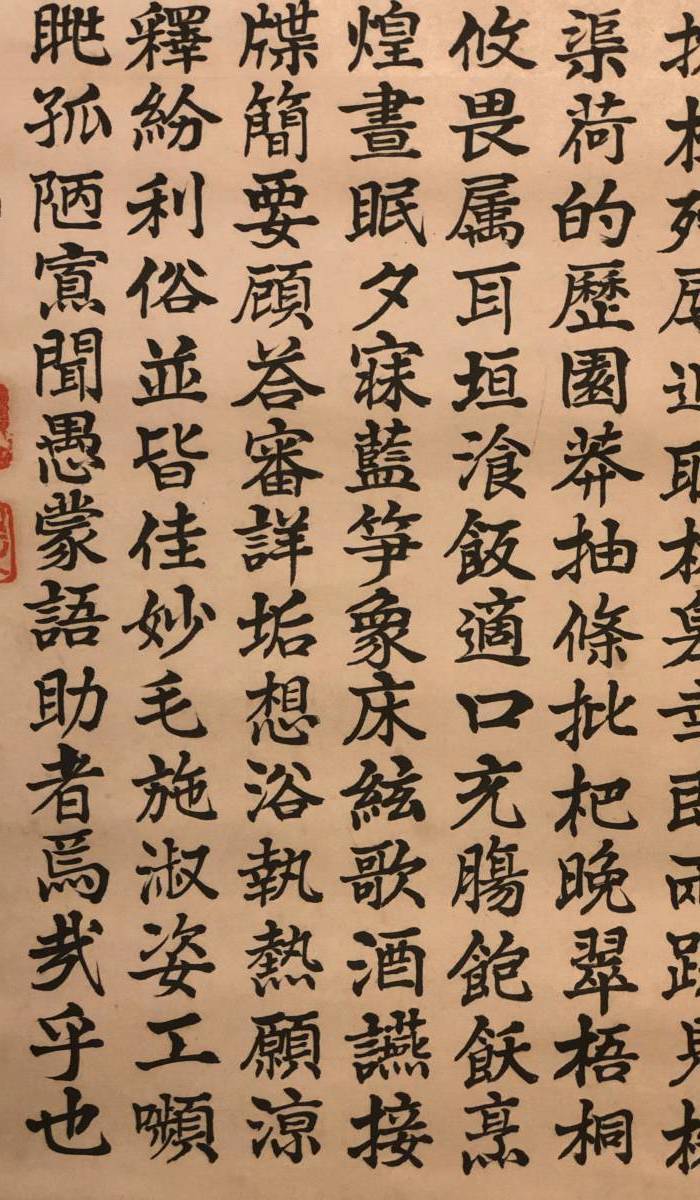 渠荷的歷園莽抽條批杷晚翠梧桐
攸畏属耳垣湌飯適口充膓飽飫烹
煌晝眠夕寐藍笋象床絃歌酒讌接
牒簡要顧荅審詳垢想浴執熱願涼
釋紛利俗並皆佳妙毛施淑姿工嚬
眺孤陋寡聞愚蒙語助者焉哉乎也